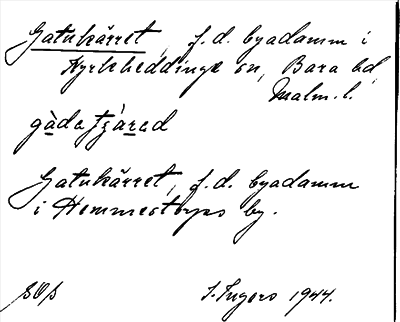 Gatukärret, f.d. byadamm i
Kyrkheddinge sn, Bara hd,
Malm. l.
gàdatjárad
Gatukärret, f.d. byadamm
i Hemmestorps by.
SOS
I. Ingers 1944.